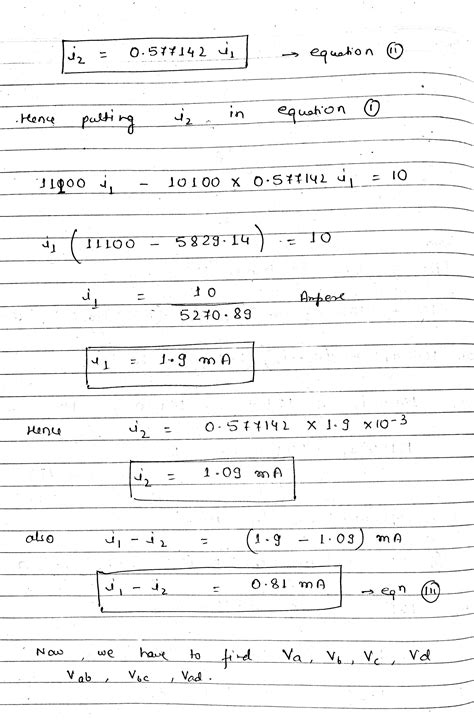 i₂ = 0.577142 i₁ → equation (ii)
Hence putting i₂ in equation (i)
11100 i₁ - 10100 x 0.577142 i₁ = 10
i₁ ( 11100 - 5829.14 ) = 10
i₁ = 10 / 5270.89 Ampere
i₁ = 1.9 mA
Hence i₂ = 0.577142 x 1.9 x10⁻³
i₂ = 1.09 mA
also i₁ - i₂ = (1.9 - 1.09) mA
i₁ - i₂ = 0.81 mA → eqn (iii)
Now we have to find Va, Vb, Vc, Vd
Vab, Vbc, Vad.